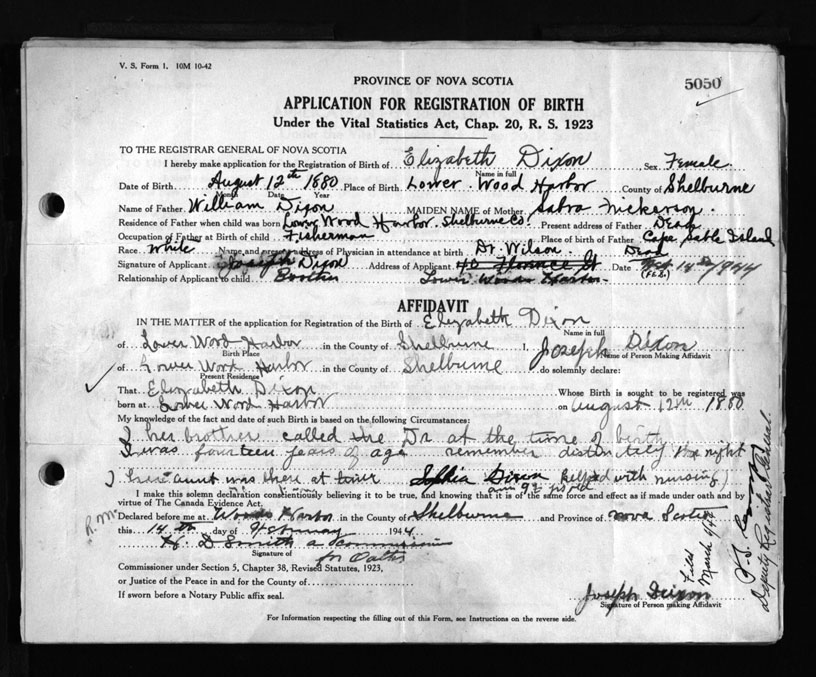 V. S. Form 1. 10M 10-42
PROVINCE OF NOVA SCOTIA
5050
APPLICATION FOR REGISTRATION OF BIRTH
Under the Vital Statistics Act, Chap. 20, R. S. 1923
TO THE REGISTRAR GENERAL OF NOVA SCOTIA
I hereby make application for the Registration of Birth of Elizabeth Dixon Sex Female
Name in full
Date of Birth August 12th 1880 Place of Birth Lower Wood Harbor County of Shelburne
Month Date Year
Name of Father William Dixon MAIDEN NAME of Mother Sabra Nickerson
Residence of Father when child was born Lower Wood Harbor Shelburne Co. Present address of Father Dead
Occupation of Father at Birth of child Fisherman Place of birth of Father Cape Sable Island
Race White Name and present address of Physician in attendance at birth Dr. Wilson Dead
Signature of Applicant Joseph Dixon Address of Applicant 40 Florence St Date Feb 14th 1944
Relationship of Applicant to child Brother Lower Woods Harbor
AFFIDAVIT
IN THE MATTER of the application for Registration of the Birth of Elizabeth Dixon
Name in full
of Lower Wood Harbor in the County of Shelburne I, Joseph Dixon
Birth Place Name of Person Making Affidavit
of Lower Wood Harbor in the County of Shelburne do solemnly declare:
Present Residence
That Elizabeth Dixon Whose Birth is sought to be registered was
born at Lower Wood Harbor on August 12th 1880
My knowledge of the fact and date of such Birth is based on the following Circumstances:
I her brother called the Dr at the time of birth
I was fourteen years of age remember the night
aunt was there at time Sophia Dixon helped with nursing
I make this solemn declaration conscientiously believing it to be true, and knowing that it is of the same force and effect as if made under oath and by
virtue of The Canada Evidence Act.
Declared before me at Woods Harbor in the County of Shelburne and Province of Nova Scotia
this 14th day of February 1944
H. D Smith a commissioner
Signature of
for Oaths
Commissioner under Section 5, Chapter 38, Revised Statutes, 1923,
or Justice of the Peace in and for the County of
If sworn before a Notary Public affix seal.
Joseph Dixon
Signature of Person making Affidavit
For Information respecting the filling out of this Form, see Instructions on the reverse side.
R. M.
Filed March 9/44
Deputy Registrar General